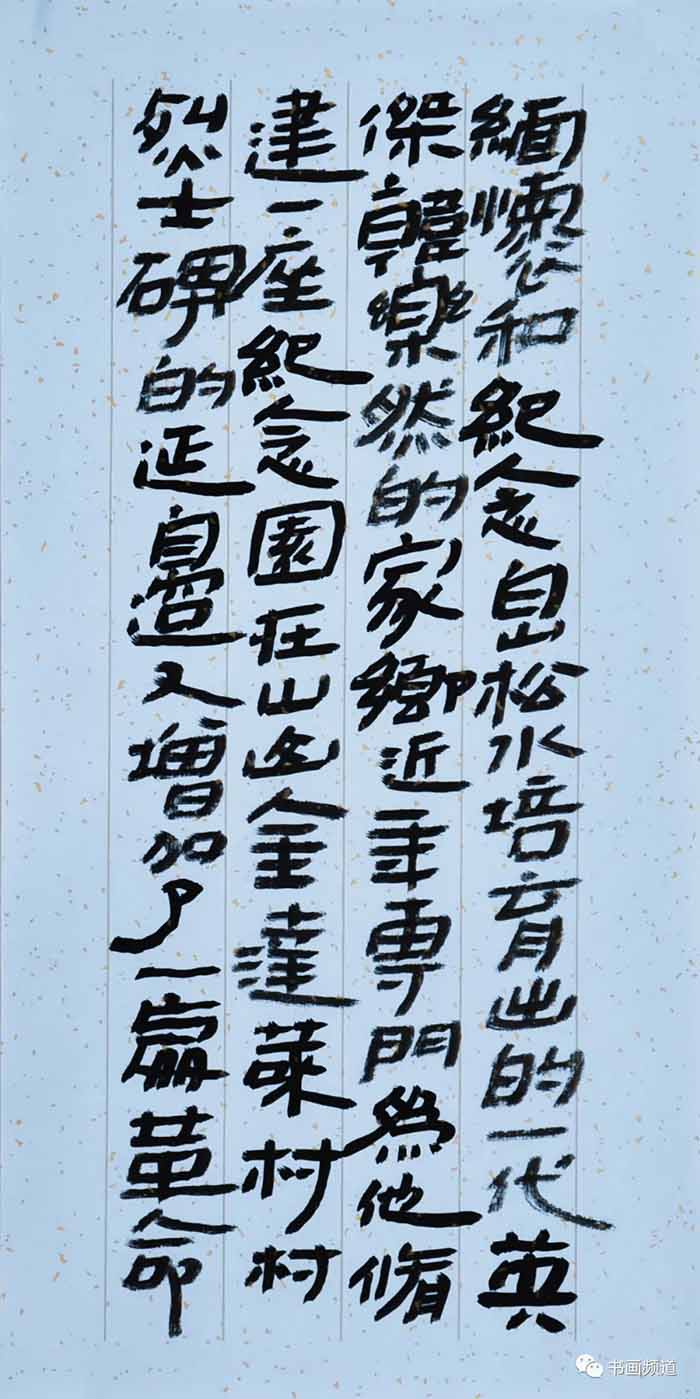 緬懷和紀念白山松水培育出的一代英
傑韓樂然的家鄉近年專門為他修
建一座紀念園在山山金達萊村村
烈士碑的延邊又增加了一處革命
书画频道